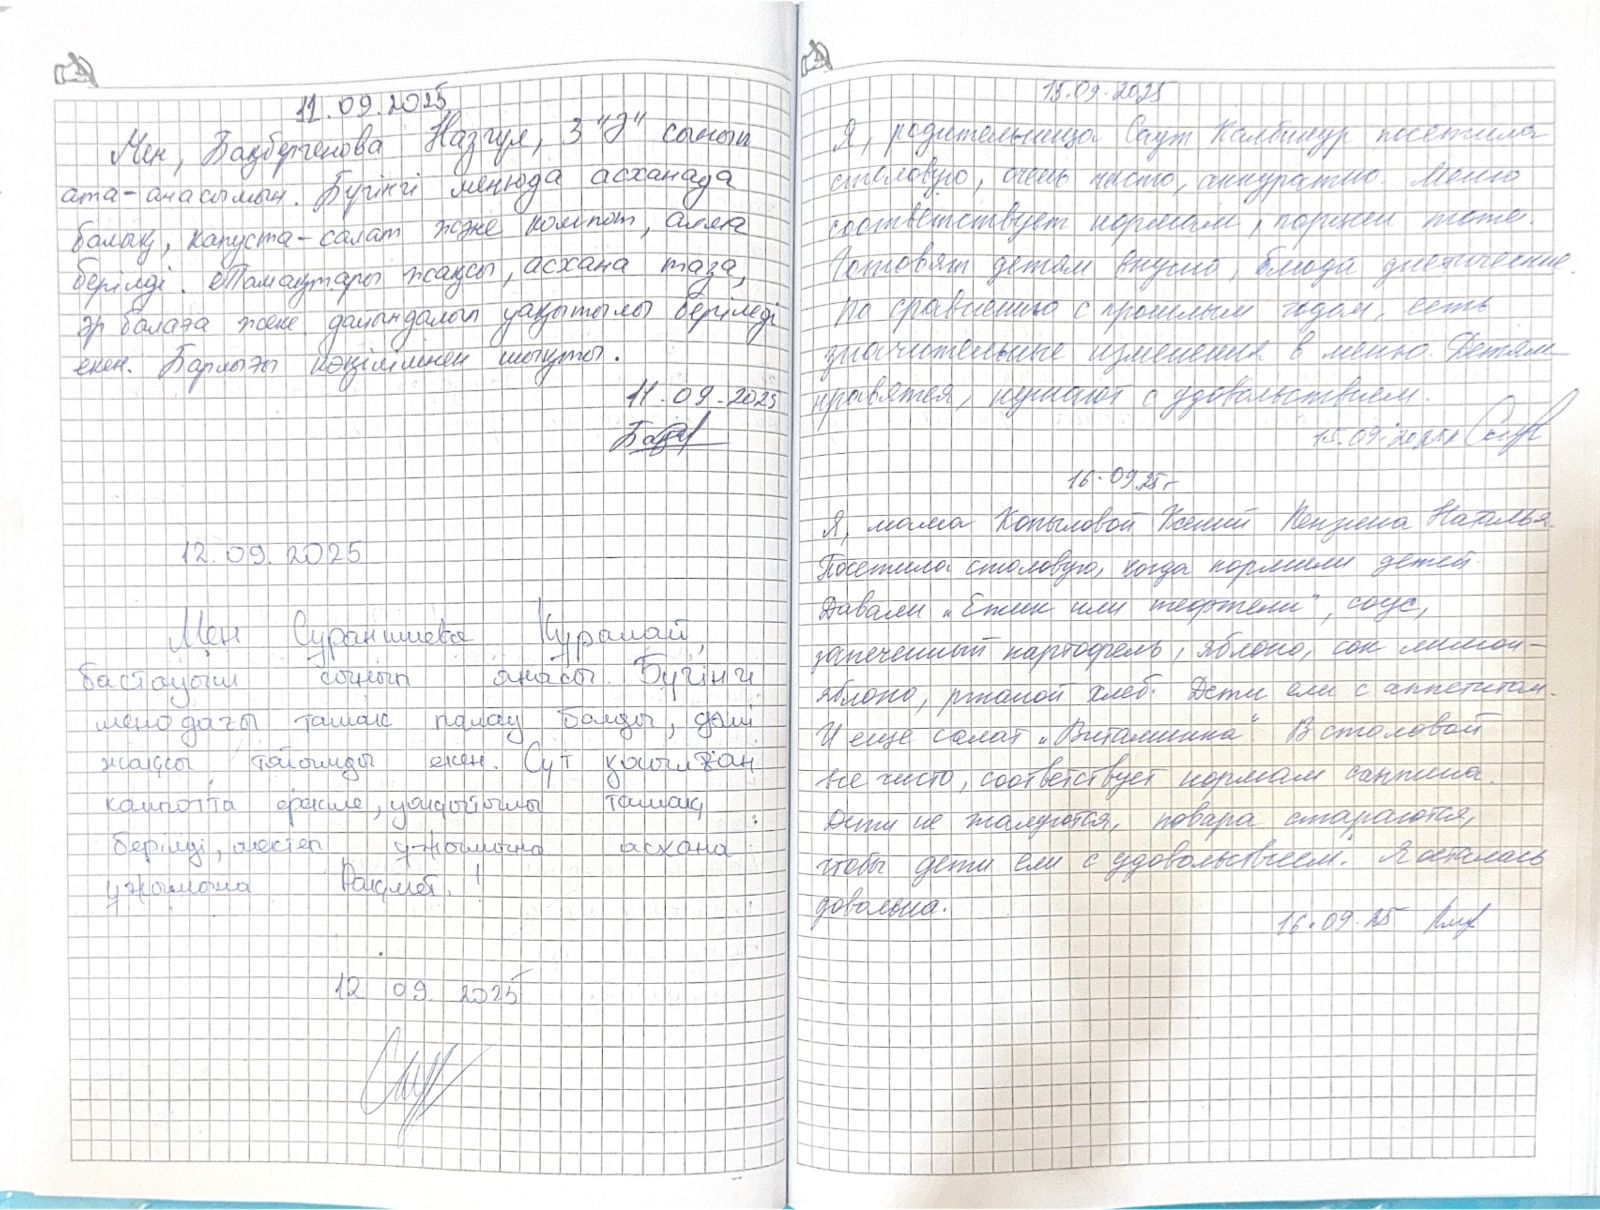 11.09.2025
Мен, Бакбергенова Назгул, 3 "Ә" сынып
ата-анасымын. Бүгінгі менюда асханада
балық, капуста-салат және компот, алма
берілді. Тамақтары жақсы, асхана таза,
әр балаға жеке дайындалып уақытылы беріледі
екен. Барлығы көңілімнен шықты.
11.09.2025
12.09.2025
Мен Сураншиева Куралай,
бастауыш сынып анасы. Бүгінгі
менюдағы тамақ палау болды, дәмі
жақсы, тойымды екен. Сүт қосылған
компотта ерекше, уақытылы тамақ
берілді, мектеп ұжымына асхана
ұжымына Рақмет!
12 09. 2025
15.09.2025
Я, родительница Саут Калбинур посетила
столовую, очень чисто, аккуратно. Меню
соответствует нормам, порции тоже.
Готовят детям вкусно, блюда диетические.
По сравнению с прошлым годом, есть
значительные изменения в меню. Детям
нравятся, кушают с удовольствием.
15.09.2025г
16.09.25г
Я, мама Копыловой Ксении Наталья.
Посетила столовую, когда кормили детей.
Давали „Ёжик или тефтели", соус,
запеченный картофель, яблоко, сок лимон-
яблоко, ржаной хлеб. Дети ели с аппетитом.
И еще салат „Витаминка" В столовой
все чисто, соответствует нормам санпина.
Дети не жалуются, повара стараются,
чтобы дети ели с удовольствием. Я осталась
довольна.
16.09.25